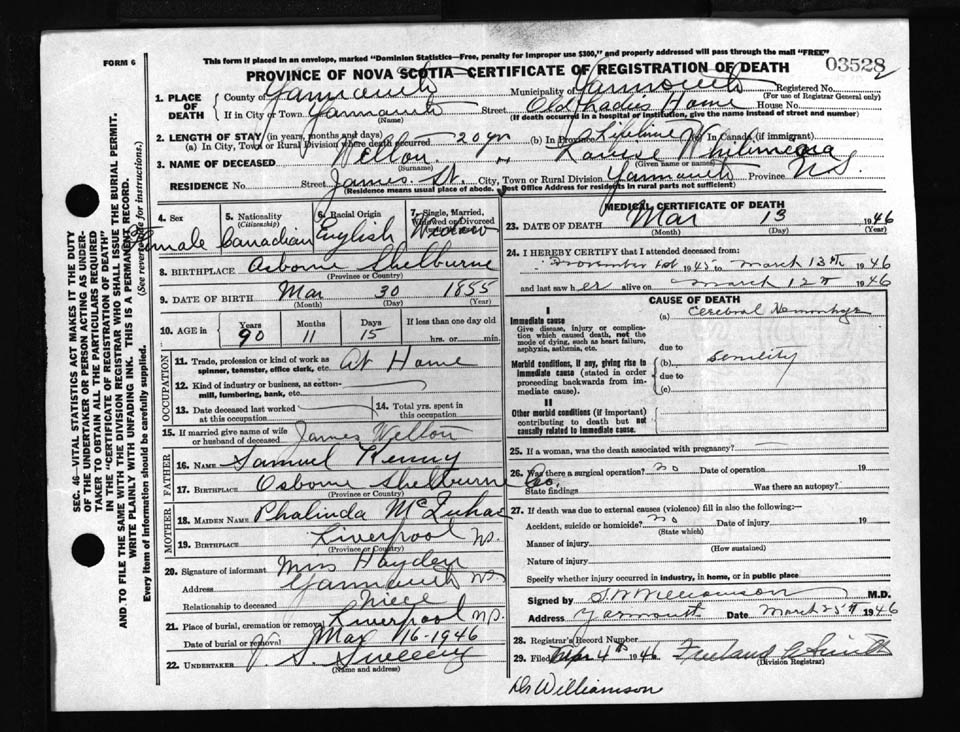 FORM 6
This form if placed in an envelope, marked "Dominion Statistics—Free, penalty for improper use $300," and properly addressed will pass through the mail "FREE"
PROVINCE OF NOVA SCOTIA—CERTIFICATE OF REGISTRATION OF DEATH
03528
1. PLACE OF DEATH
County of Yarmouth Municipality of Yarmouth Registered No.
(For use of Registrar General only)
If in City or Town Yarmouth Street Old Ladies Home House No.
(Name) (If death occurred in a hospital or institution, give the name instead of street and number)
2. LENGTH OF STAY (in years, months and days)
(a) In City, Town or Rural Division where death occurred 20 yr (b) In Province Lifetime (c) In Canada (if immigrant)
3. NAME OF DECEASED Louise
(Surname) (Given name or names)
RESIDENCE No. Street James St. City, Town or Rural Division Yarmouth Province N.S.
(Residence means usual place of abode. Post Office Address for residents in rural parts not sufficient)
4. Sex Female
5. Nationality (Citizenship) Canadian
6. Racial Origin English
7. Single, Married, Widowed or Divorced Widow
8. BIRTHPLACE Osborne Shelburne
(Province or Country)
9. DATE OF BIRTH Mar 30 1855
(Month) (Day) (Year)
10. AGE in Years Months Days If less than one day old
90 11 15 hrs. or min.
OCCUPATION
11. Trade, profession or kind of work as spinner, teamster, office clerk, etc. At Home
12. Kind of industry or business, as cotton-mill, lumbering, bank, etc.
13. Date deceased last worked at this occupation
14. Total yrs. spent in this occupation
15. If married give name of wife or husband of deceased James
FATHER
16. NAME Samuel Kenny
17. BIRTHPLACE Osborne Shelburne Co.
(Province or Country)
MOTHER
18. MAIDEN NAME Phalinda
19. BIRTHPLACE Liverpool N.S.
(Province or Country)
20. Signature of informant Mrs Hayden
Address Yarmouth N.S.
Relationship to deceased Niece
21. Place of burial, cremation or removal Liverpool N.S.
Date of burial or removal Mar 16-1946
22. UNDERTAKER V. S. Sweeny
(Name and address)
MEDICAL CERTIFICATE OF DEATH
23. DATE OF DEATH Mar 13 1946
(Month) (Day) (Year)
24. I HEREBY CERTIFY that I attended deceased from:
November 1st 1945 to March 13th 1946
and last saw her alive on March 12th 1946
CAUSE OF DEATH
I
Immediate cause
Give disease, injury or complication which caused death, not the mode of dying, such as heart failure, asphyxia, asthenia, etc.
(a) Cerebral Hemorrhage
due to
Morbid conditions, if any, giving rise to immediate cause (stated in order proceeding backwards from immediate cause).
(b) Senility
due to
(c)
II
Other morbid conditions (if important) contributing to death but not causally related to immediate cause.
25. If a woman, was the death associated with pregnancy?
26. Was there a surgical operation? no Date of operation 19
State findings Was there an autopsy?
27. If death was due to external causes (violence) fill in also the following:—
Accident, suicide or homicide? no Date of injury 19
(State which)
Manner of injury
(How sustained)
Nature of injury
Specify whether injury occurred in industry, in home, or in public place
Signed by Williamson M.D.
Address Yarmouth Date March 25th 1946
28. Registrar's Record Number
29. Filed 4th 1946
(Division Registrar)
Dr Williamson
SEC. 46—VITAL STATISTICS ACT MAKES IT THE DUTY
OF THE UNDERTAKER OR PERSON ACTING AS UNDER-
TAKER TO OBTAIN ALL THE PARTICULARS REQUIRED
IN THE "CERTIFICATE OF REGISTRATION OF DEATH"
AND TO FILE THE SAME WITH THE DIVISION REGISTRAR WHO SHALL ISSUE THE BURIAL PERMIT.
WRITE PLAINLY WITH UNFADING INK. THIS IS A PERMANENT RECORD.
Every item of information should be carefully supplied. (See reverse side for instructions.)